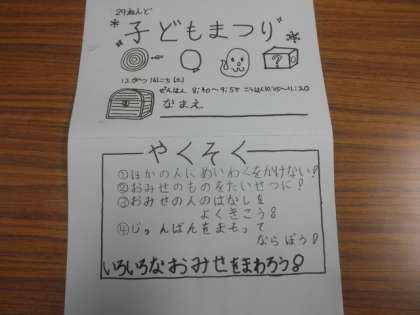 29ねんど
子どもまつり
?
12がつ 16にち(土)
ぜんはん 8:40~9:55 こうはん10:45~11:20
なまえ
やくそく
①ほかの人にめいわくをかけない!
②おみせのものをたいせつに!
③おみせの人のはなしを
よくきこう!
④じゅんばんをまもって
ならぼう!
いろいろなおみせをまわろう!